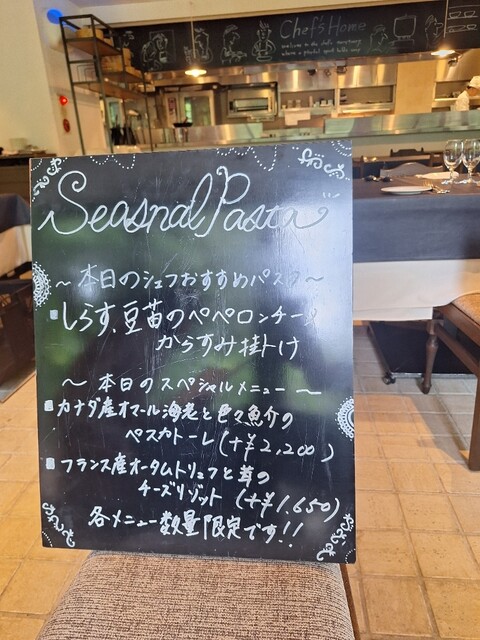 Chef's Home
Seasnal Pasta
〜本日のシェフおすすめパスタ〜
しらす、豆苗のペペロンチーノ
からすみ掛け
〜本日のスペシャルメニュー〜
カナダ産オマール海老と色々魚介の
ペスカトーレ(+¥2,200)
フランス産オータムトリュフと茸の
チーズリゾット(+¥1,650)
各メニュー数量限定です!!